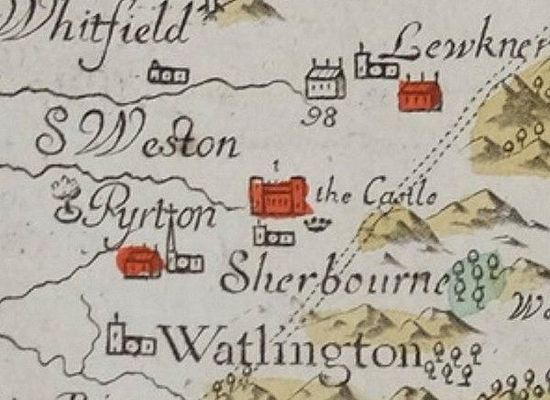 Whitfield
Lewkner
98
S Weston
the Castle
Pyrton
Sherbourne
Watlington